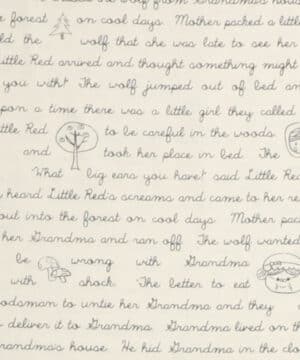 the wolf from Grandma's hous
e forest on cool days. Mother packed a littl
ld the wolf that she was late to see her
Little Red arrived and thought something might
you with! The wolf jumped out of bed an
pon a time there was a little girl they called
ttle Red to be careful in the woods.
and took her place in bed. The
What big ears you have! said Little Red
y heard Little Red's screams and came to her re
out into the forest on cool days. Mother pac
her Grandma and ran off. The wolf wanted
be wrong with Grandma
with shock. The better to eat
oodsman to untie her Grandma and they
deliver it to Grandma. Grandma lived on th
randma's house. He hid Grandma in the clo